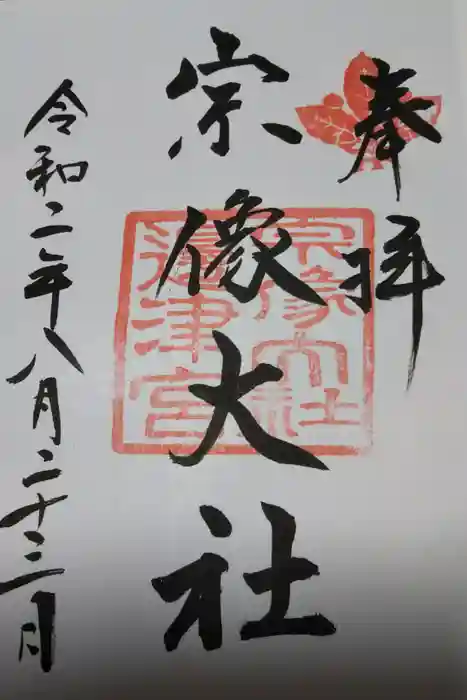 奉拝
宗像大社
宗像大社
邊津宮
令和二年八月二十三日